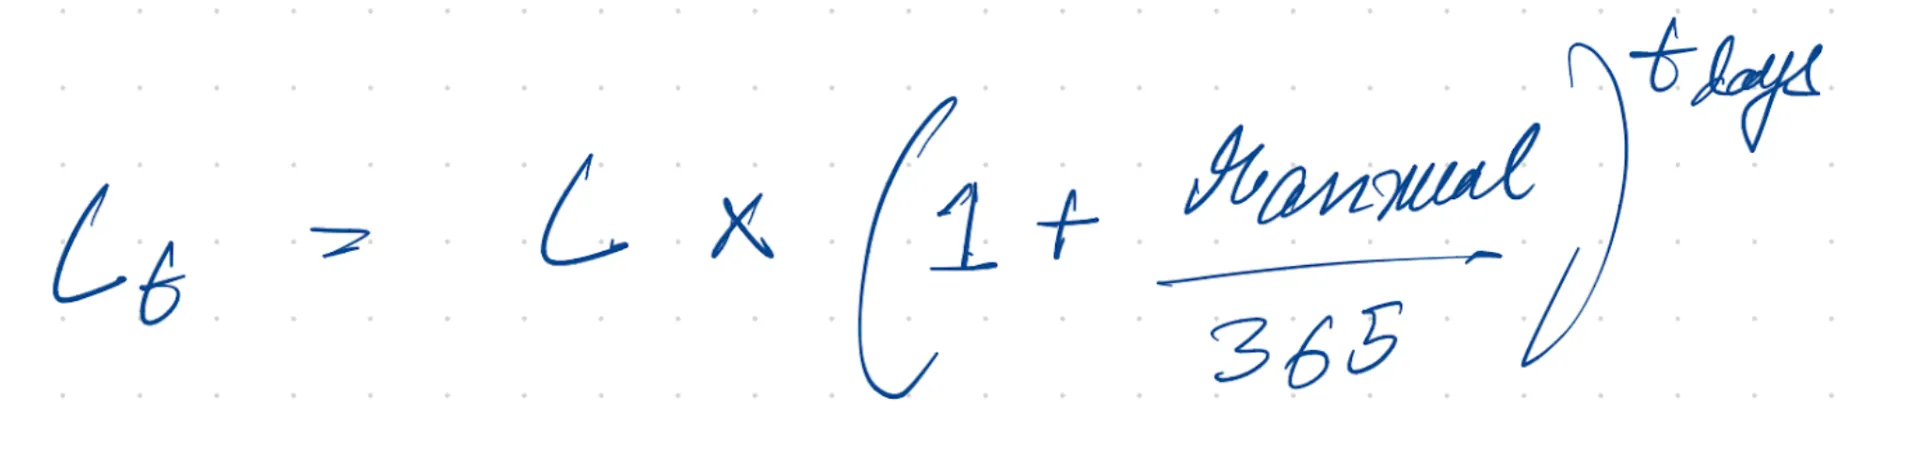 L_t = L × (1 + r_annual / 365)^t days